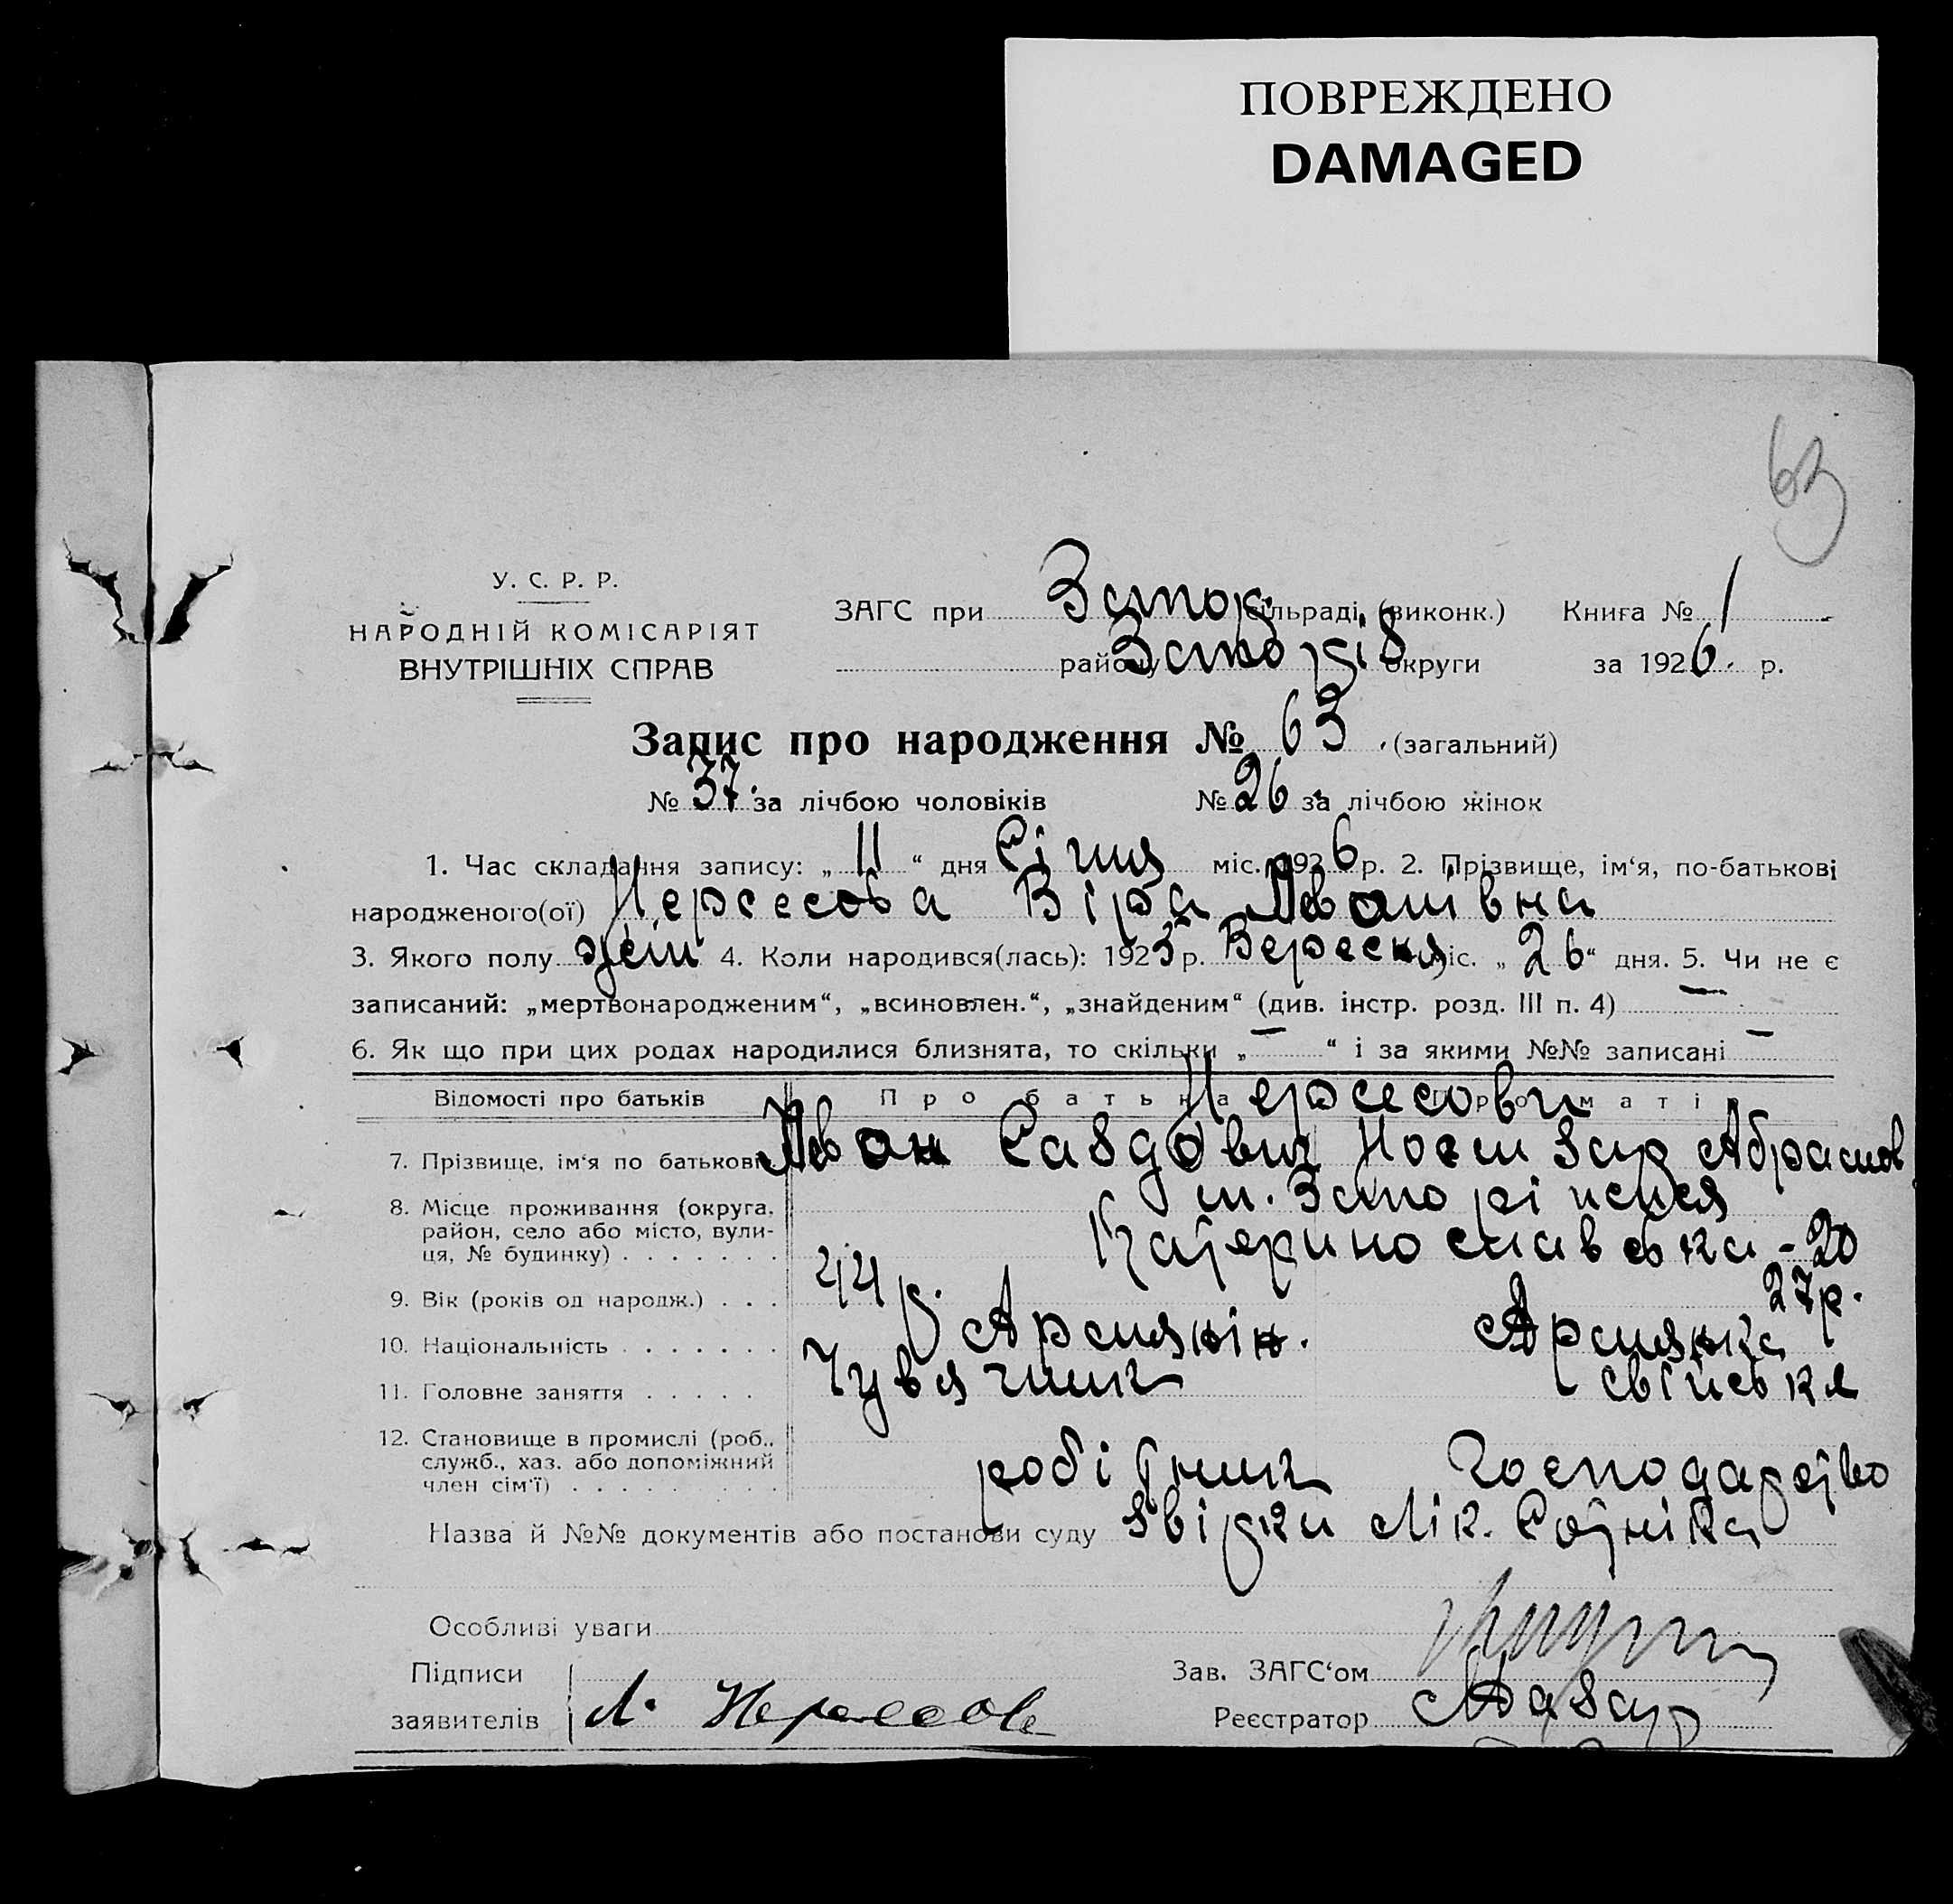 ПОВРЕЖДЕНО
DAMAGED
63
У. С. Р. Р.
НАРОДНІЙ КОМІСАРІЯТ
ВНУТРІШНІХ СПРАВ
ЗАГС при Запор. сільраді (виконк.) Книга № 1
району Запоріз округи за 1926. р.
Запис про народження № 63 (загальний)
№ 37. за лічбою чоловіків № 26. за лічбою жінок
1. Час складання запису: „ 11 “ дня Січня міс. 1926 р. 2. Прізвище, ім‘я, по-батькові
народженого(ої) Нерсесова Віра Івонівна
3. Якого полу жін 4. Коли народився(лась): 1925 р. Вересня міс. „ 26 “ дня. 5. Чи не є
записаний: „мертвонародженим“, „всиновлен.“, „знайденим“ (див. інстр. розд. III п. 4) —
6. Як що при цих родах народилися близнята, то скільки „ — “ і за якими №№ записані —
Відомості про батьків Про батька Про матір
Нерсесови
7. Прізвище, ім‘я по батькові Івон
8. Місце проживання (округа, район, село або місто, вулиця, № будинку) . . . . . . . м. Запоріжжя
Катериnославська - 20
9. Вік (років од народж.) . . . 44 р. 27 р.
10. Національність . . . . . . . Армянін. Армянка
11. Головне заняття . . . . . Чувячник свійська
12. Становище в промислі (роб., служб., хаз. або допоміжний член сім‘ї) . . . . . . . . . робітник господарство
Назва й №№ документів або постанови суду Лік.
Особливі уваги
Підписи заявителів Нерсесов
Зав. ЗАГС‘ом
Реєстратор